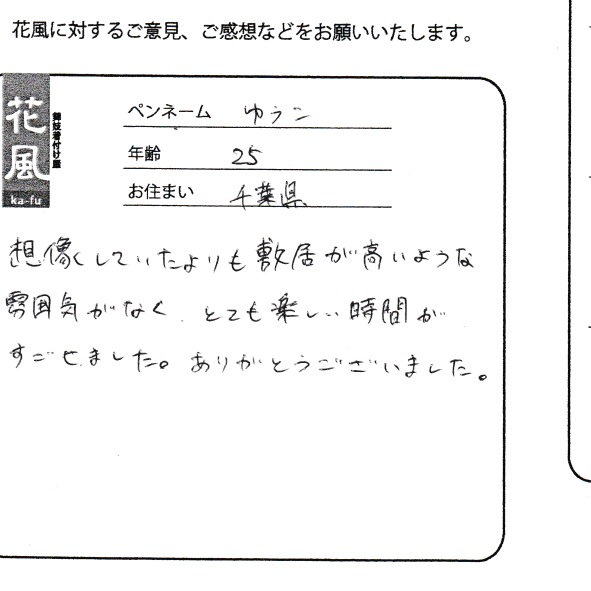 花風に対するご意見、ご感想などをお願いいたします。
花風
舞妓着付け屋
ka-fu
ペンネーム ゆうこ
年齢 25
お住まい 千葉県
想像くしていたよりも敷居が高いような
雰囲気がなく、とても楽しい時間が
すごせました。ありがとうございました。